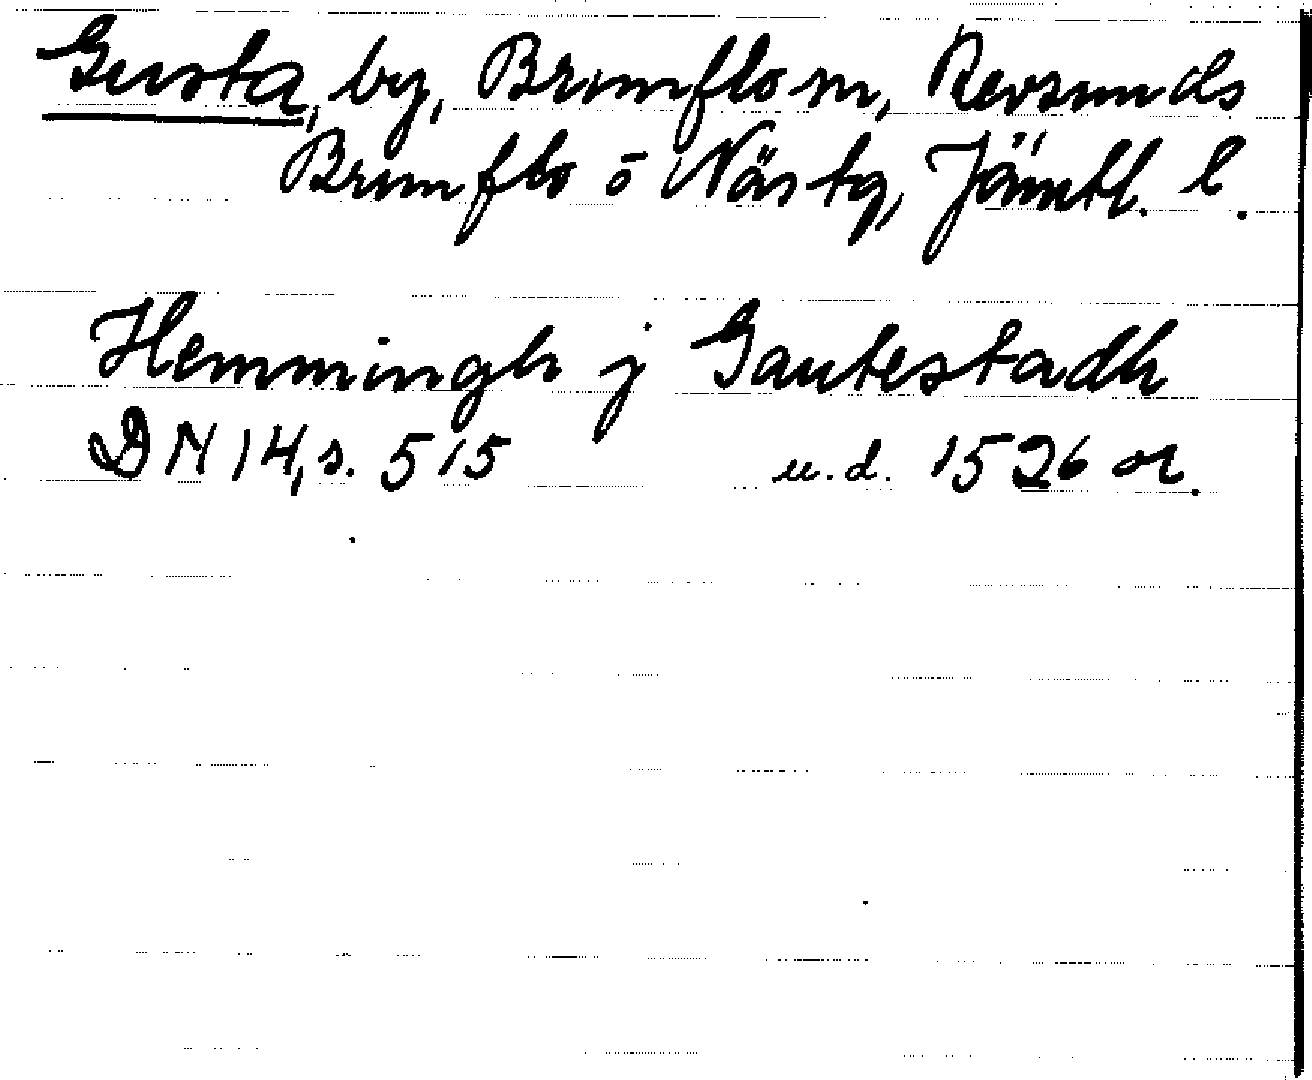 Gusta, by, Brunflo sn, Revsunds
Brunflo o Näs tg, Jämtl. l.
Hemmingh j Gautestadh
DN 14, s. 515 u.d. 1526 or.